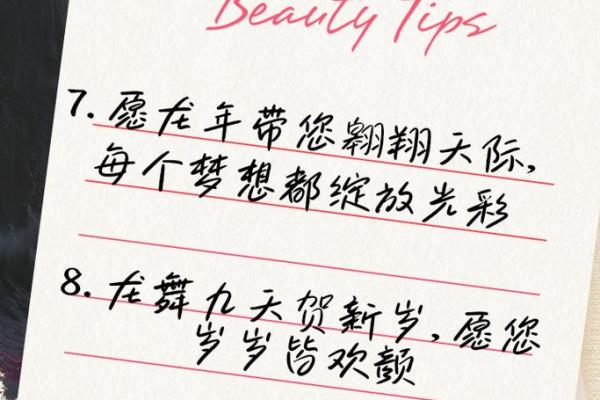 Beauty Tips
7. 愿龙年带您翱翔天际,
每个梦想都绽放光彩
8. 龙舞九天贺新岁,愿您
岁岁皆欢颜